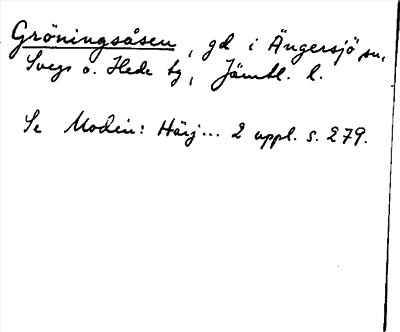 Gröningsåsen, gd i Ängersjö sn,
Svegs o. Hede tg, Jämtl. l.
Se Modin: Härj... 2 uppl. s. 279.